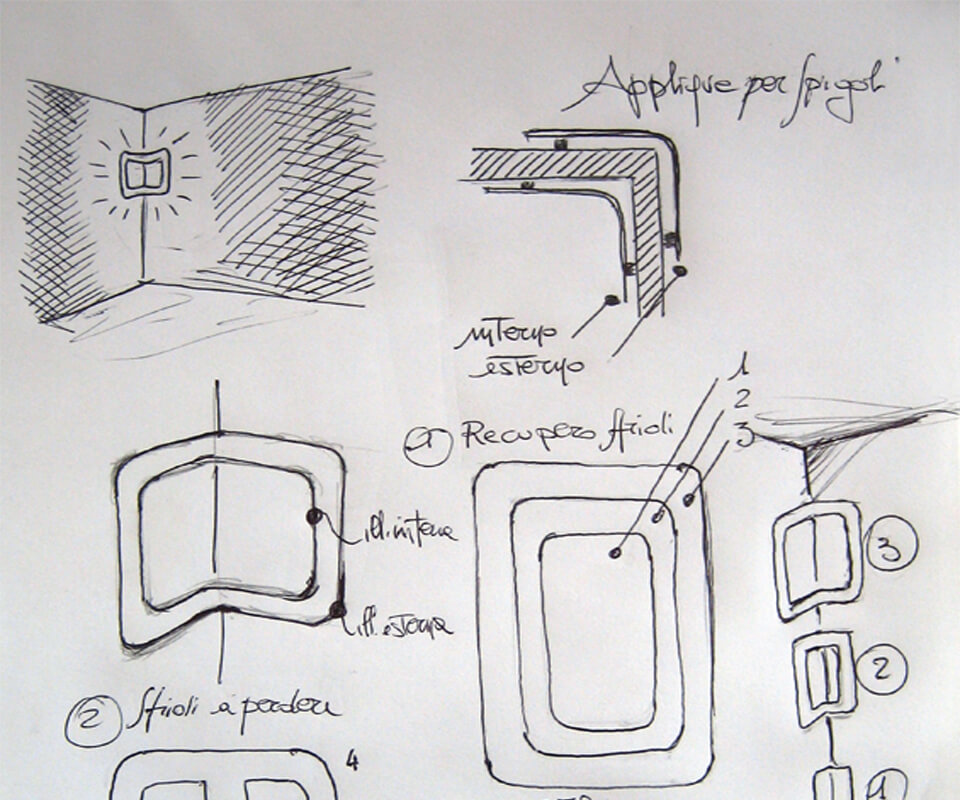 Applique per spigoli
interno
esterno
1
2
3
1 Recupero sfridi
ill. interna
ill. esterna
3
2
1
2 sfridi a perdere
4